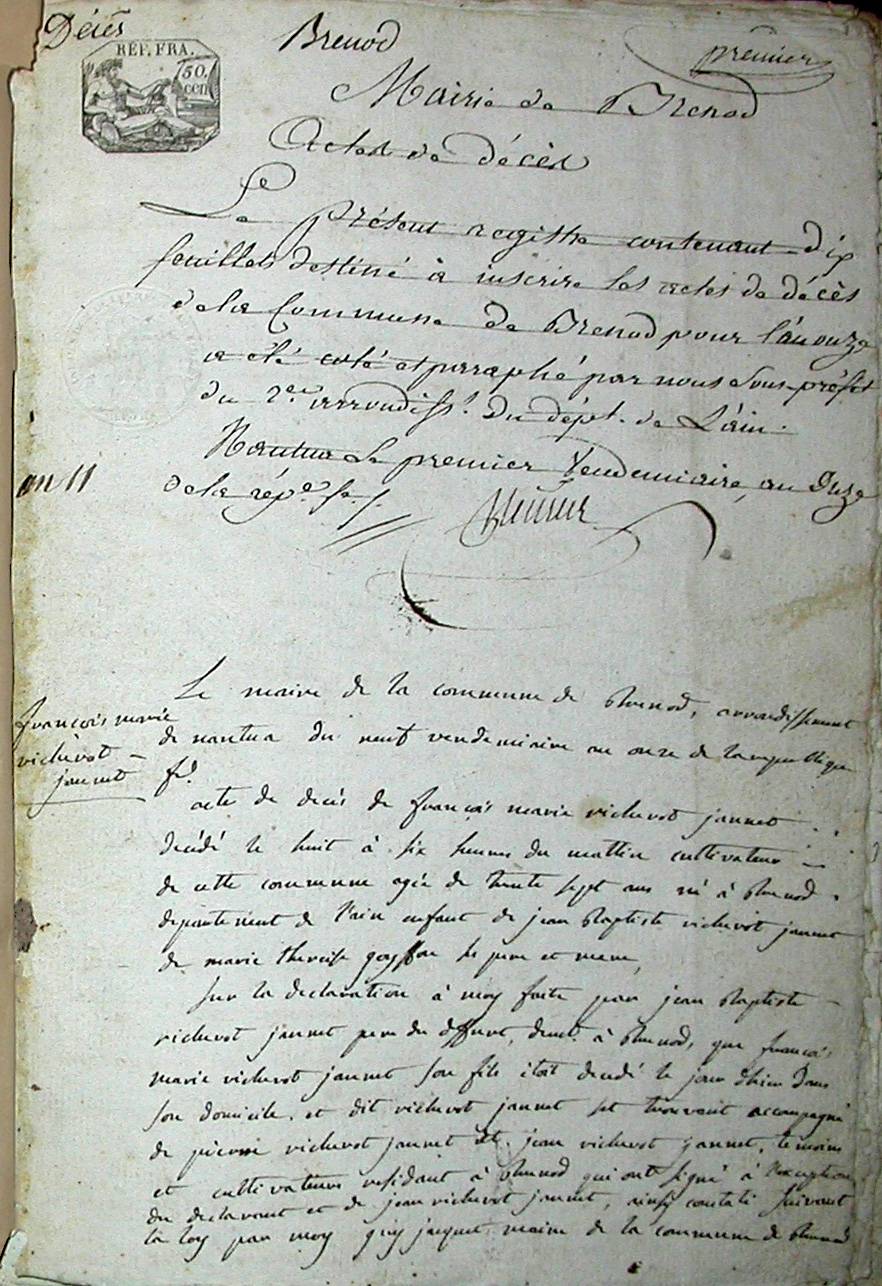 Décès
Brenod
premier
RÉP. FRA.
50.
cen
Mairie de Brenod
Actes de décès
Le présent registre contenant dix
feuillets destiné à inscrire les actes de décès
de la Commune de Brenod pour l'an onze
a été coté et paraphé par nous Sous-préfet
du 2e. arrondisst. Du dépt. de L'ain.
Nantua Le premier Vendemiaire, an Onze
de la répe. fse./.
an 11
Le maire de la commune de Brenod, arrondissement
de nantua du neuf vendemiaire an onze de la republique
fse.
françois marie
vichevot
jannet
acte de decès de françois marie vichevot jannet
decédé le huit à six heures du mattin cultivateur
de cette commune agée de trente sept ans né à Brenod
departement de l'ain enfant de jean Baptiste vichevot jannet
de marie therese goyffon ses pere et mere,
sur la declaration à moy faite par jean Baptiste
vichevot jannet pere du deffunt, demt. à Brenod, que françois
marie vichevot jannet son fils étoit decedé le jour d'hier dans
son domicile, et dit vichevot jannet set trouvant accompagné
de pierre vichevot jannet et jean vichevot jannet, temoins
et cultivateurs residant à Brenod qui ont signé à l'exception
du declarant et de jean vichevot jannet, ainsy constaté suivant
la loy par moy guy jacquet maire de la commune de Brenod